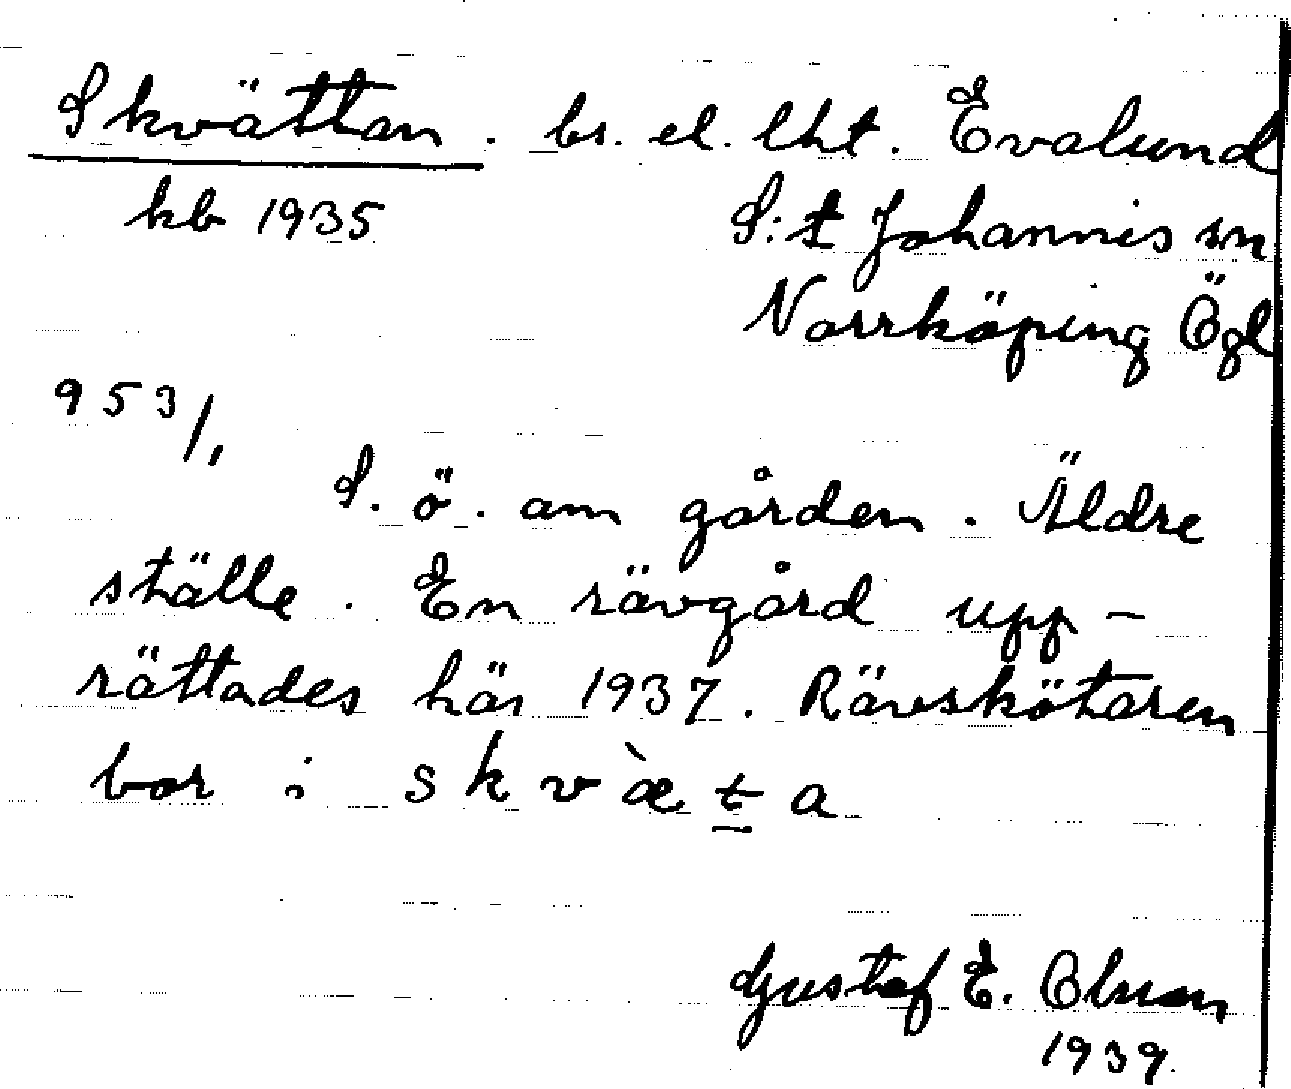 Skvättan. bs. el. lht. Evalund
kb 1935 S:t Johannis sn
Norrköping Ögl
953/1
S. ö. om gården. Äldre
ställe. En rävgård upp-
rättades här 1937. Rävskötaren
bor i skvæ̀ṯa
Gustaf E. Olson
1939.